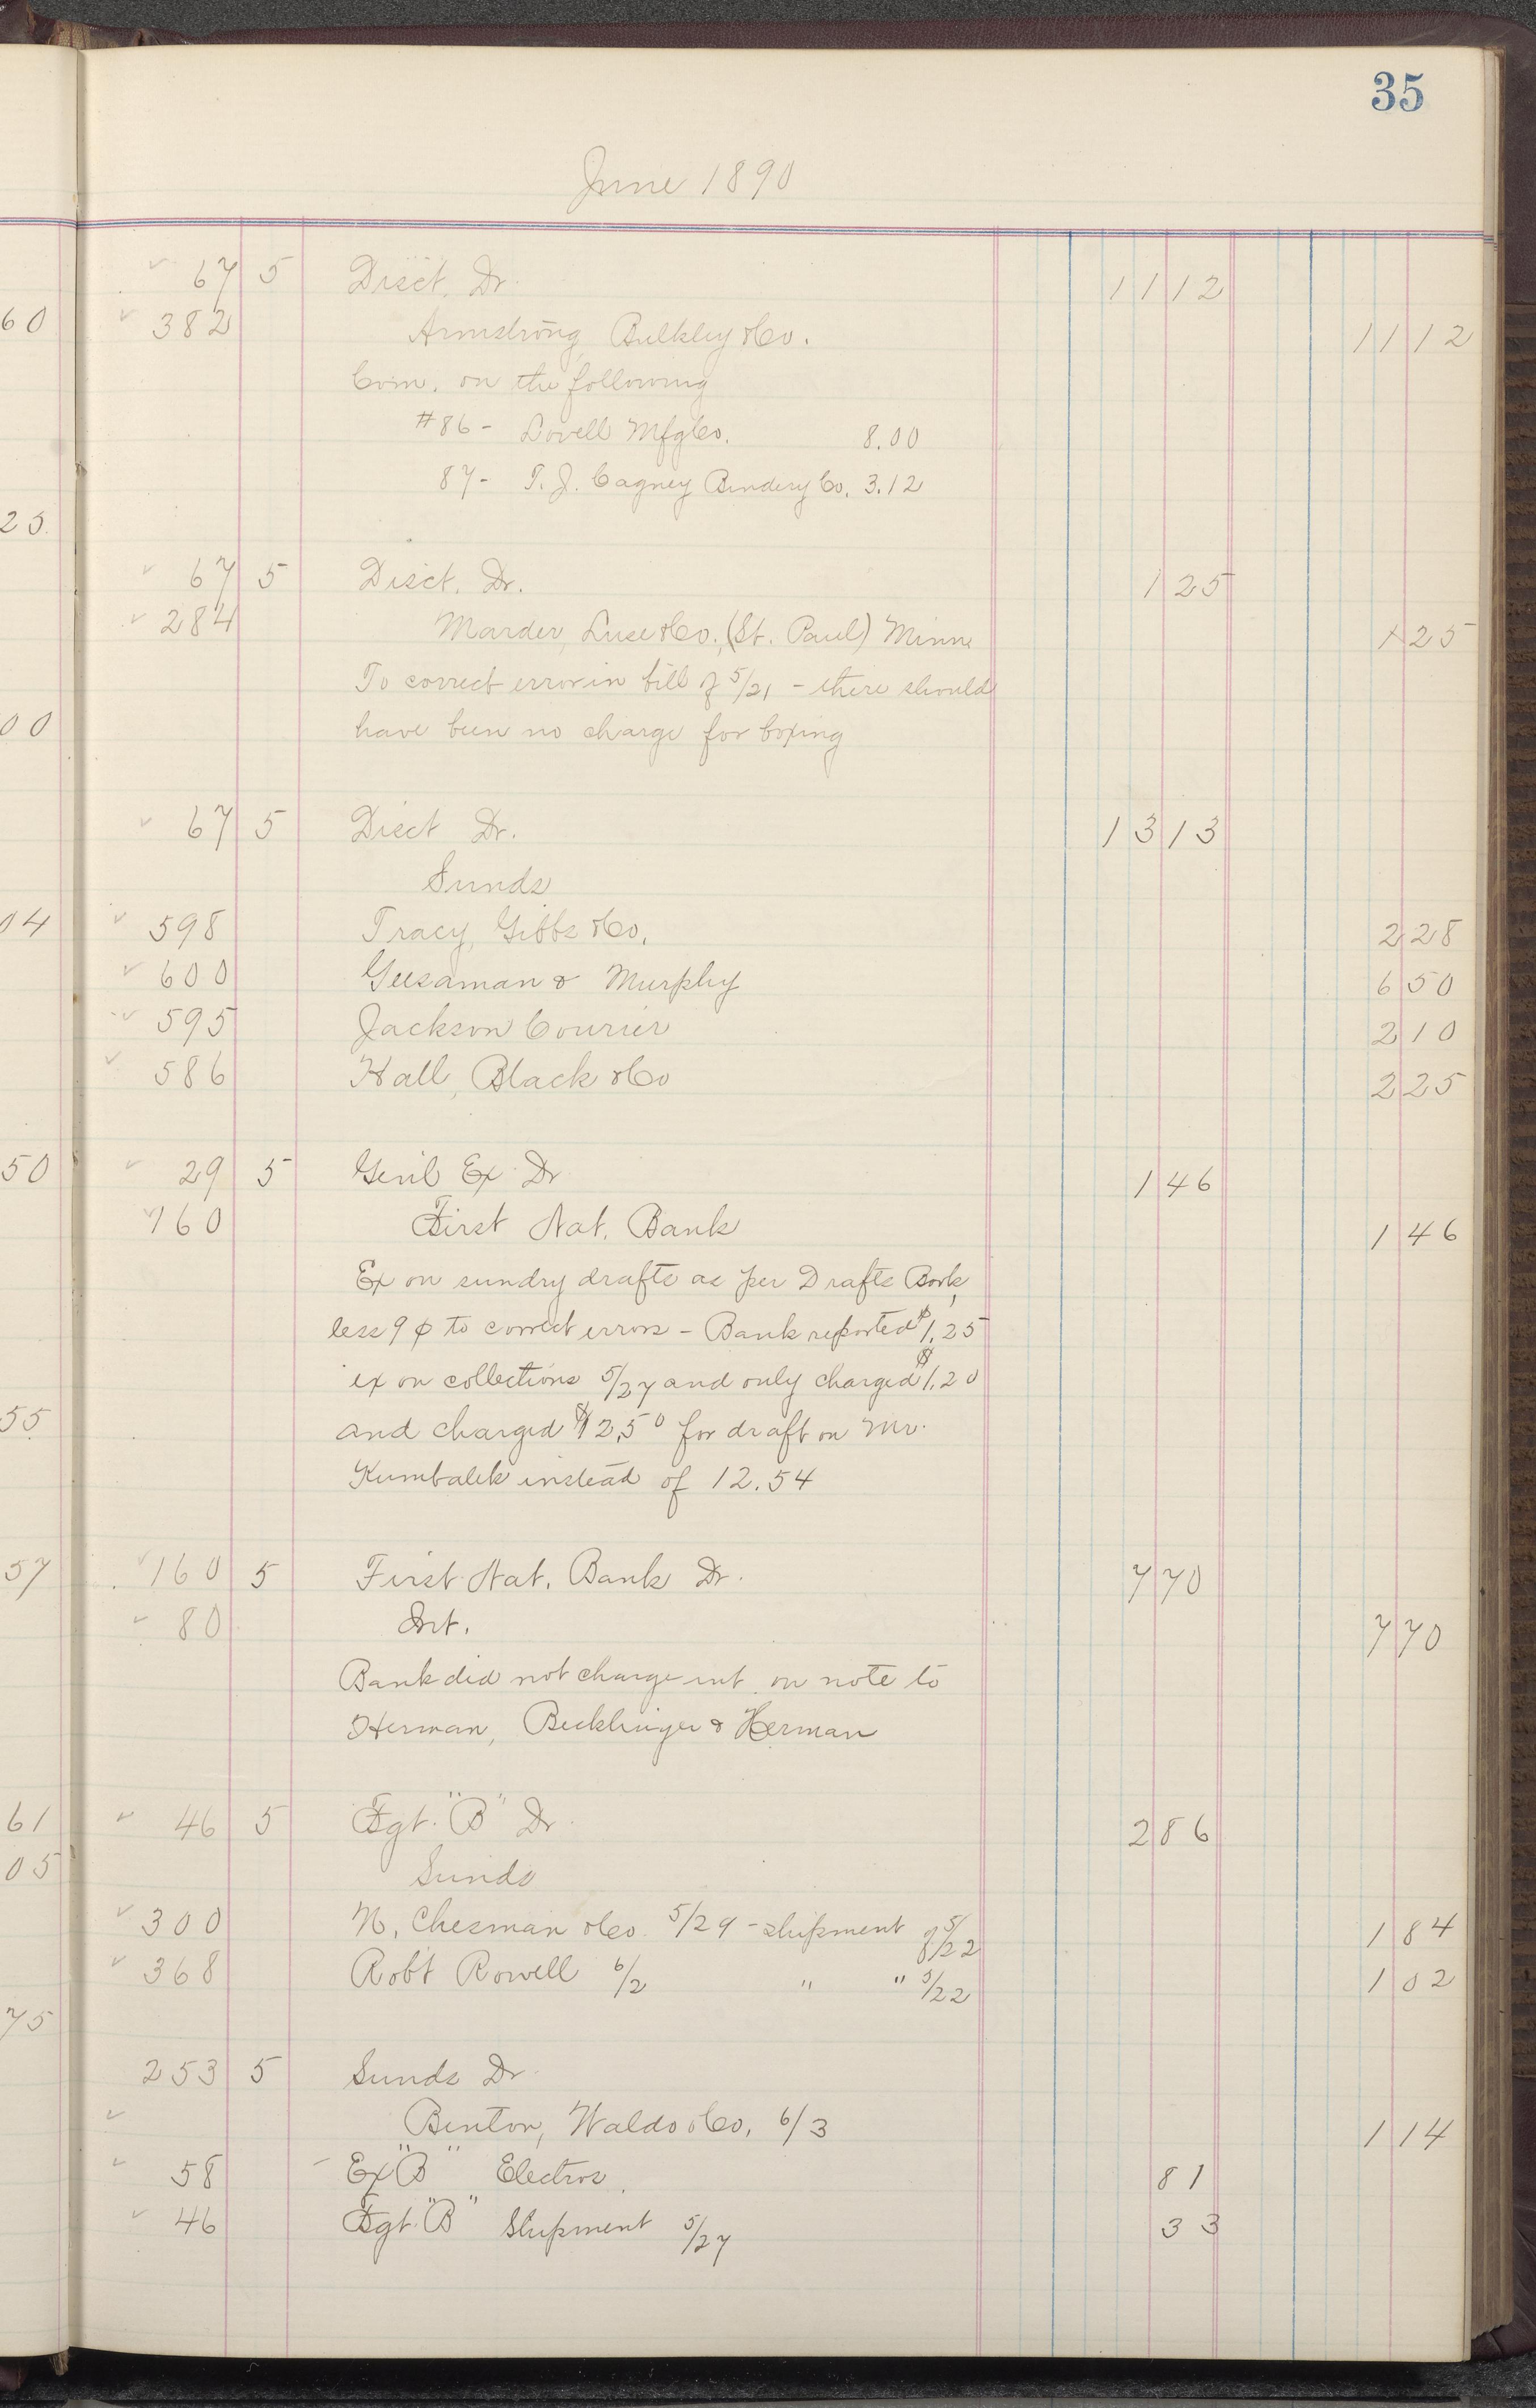 35
June 1890
67 5 Disct. Dr. 11 12
60 382 Armstrong, Bulkley & Co. 11 12
Com. on the following
#86 - Lovell Mfg Co. 8.00
87 - T. J. Cagney Bindery Co. 3.12
25
67 5 Disct. Dr. 1 25
284 Marder, Luse & Co. (St. Paul) Minne 1 25
To correct error in bill of 5/21 - there should
00 have been no charge for boxing
67 5 Disct Dr. 13 13
Sunds
04 598 Tracy, Gibbs & Co. 2 28
600 Geesaman & Murphy 6 50
595 Jackson Courier 2 10
586 Hall, Black & Co 2 25
50 29 5 Genl Ex Dr 1 46
160 First Nat. Bank 1 46
Ex on sundry drafts as per Drafts Book,
less 9 ¢ to correct errors - Bank reported $1.25
ex on collections 5/27 and only charged $1.20
55 and charged $12.50 for draft on Mr.
Kumbalek instead of 12.54
57 160 5 First Nat. Bank Dr. 7 70
80 Int. 7 70
Bank did not charge int. on note to
Herman, Becklinger & Herman
61 46 5 Fgt. "B" Dr 2 86
05 Sunds
300 N. Chesman & Co. 5/29 - shipment of 5/22 1 84
368 Robt Rowell 6/2 " " 5/22 1 02
75
253 5 Sunds Dr
Benton, Waldo & Co. 6/3 1 14
58 Ex "B" Electros 81
46 Fgt. "B" Shipment 5/27 33